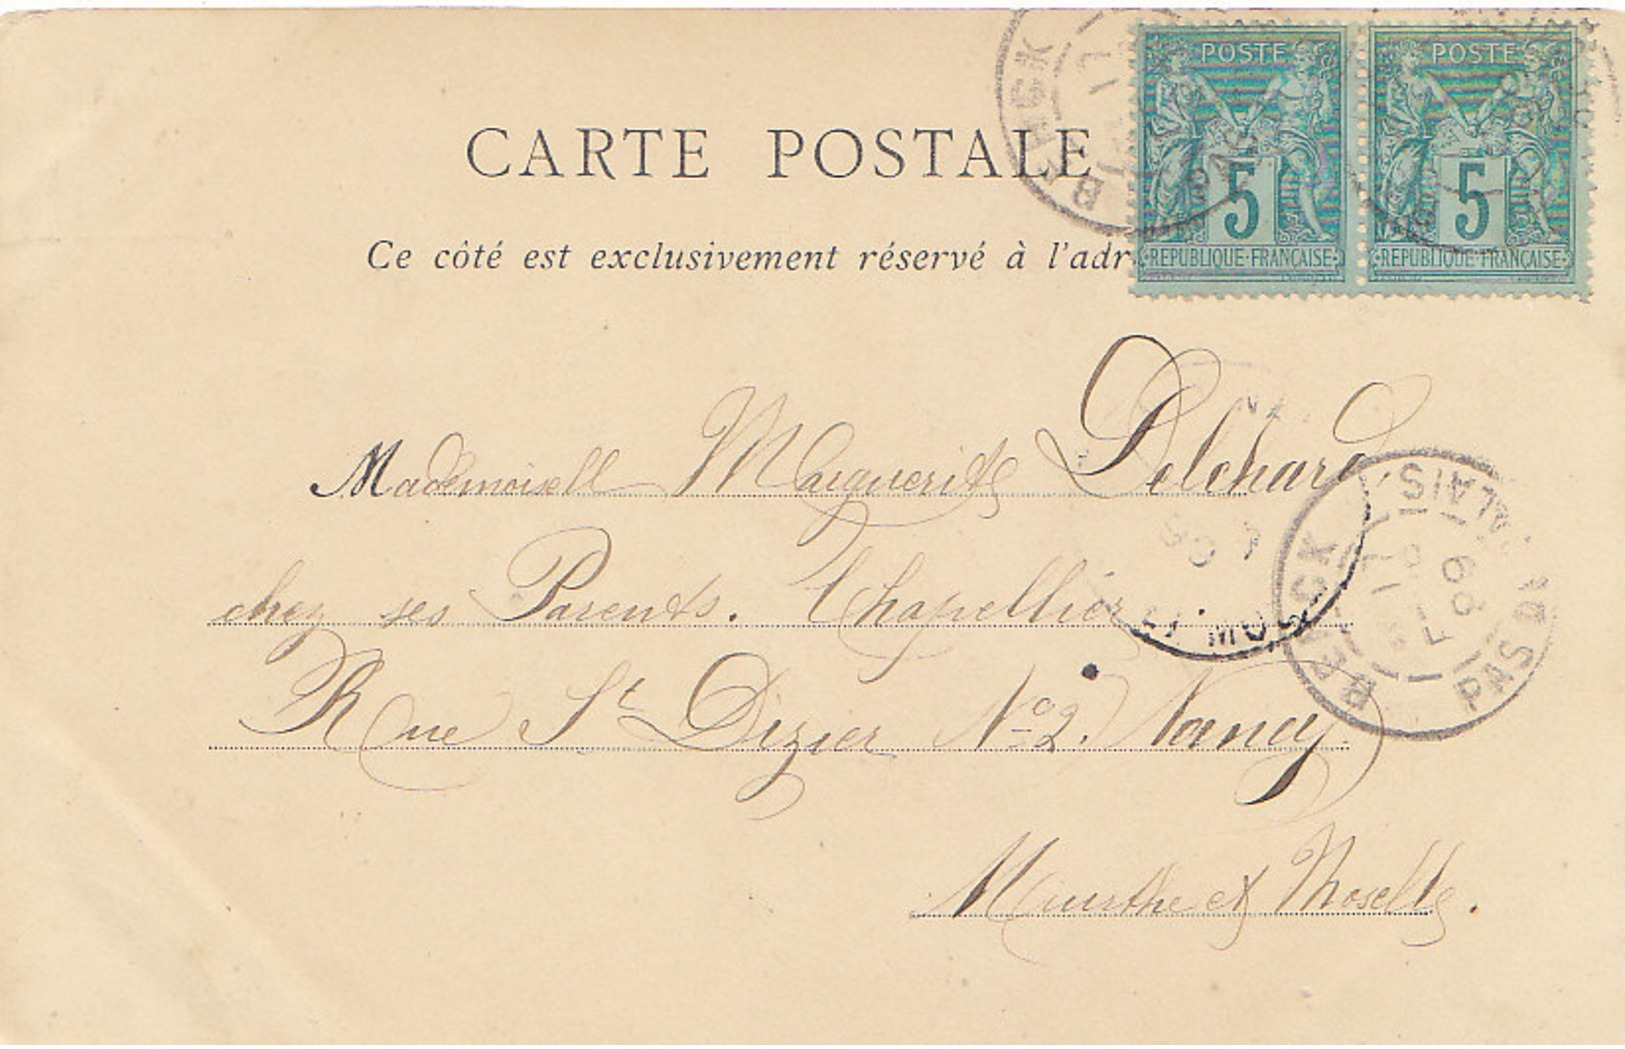 POSTE POSTE
5 5
RÉPUBLIQUE FRANÇAISE RÉPUBLIQUE FRANÇAISE
BERCK
CARTE POSTALE
Ce côté est exclusivement réservé à l'adr
Mademoisell Marguerite Delchard
chez ses Parents. Chapellier.
Rue St Dizier No 2. Nancy
Meurthe et Moselle.
BERCK PAS DE CALAIS
99